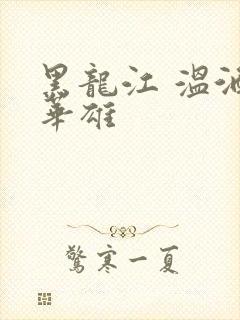 黑龍江 溫
華雄
驚寒一夏